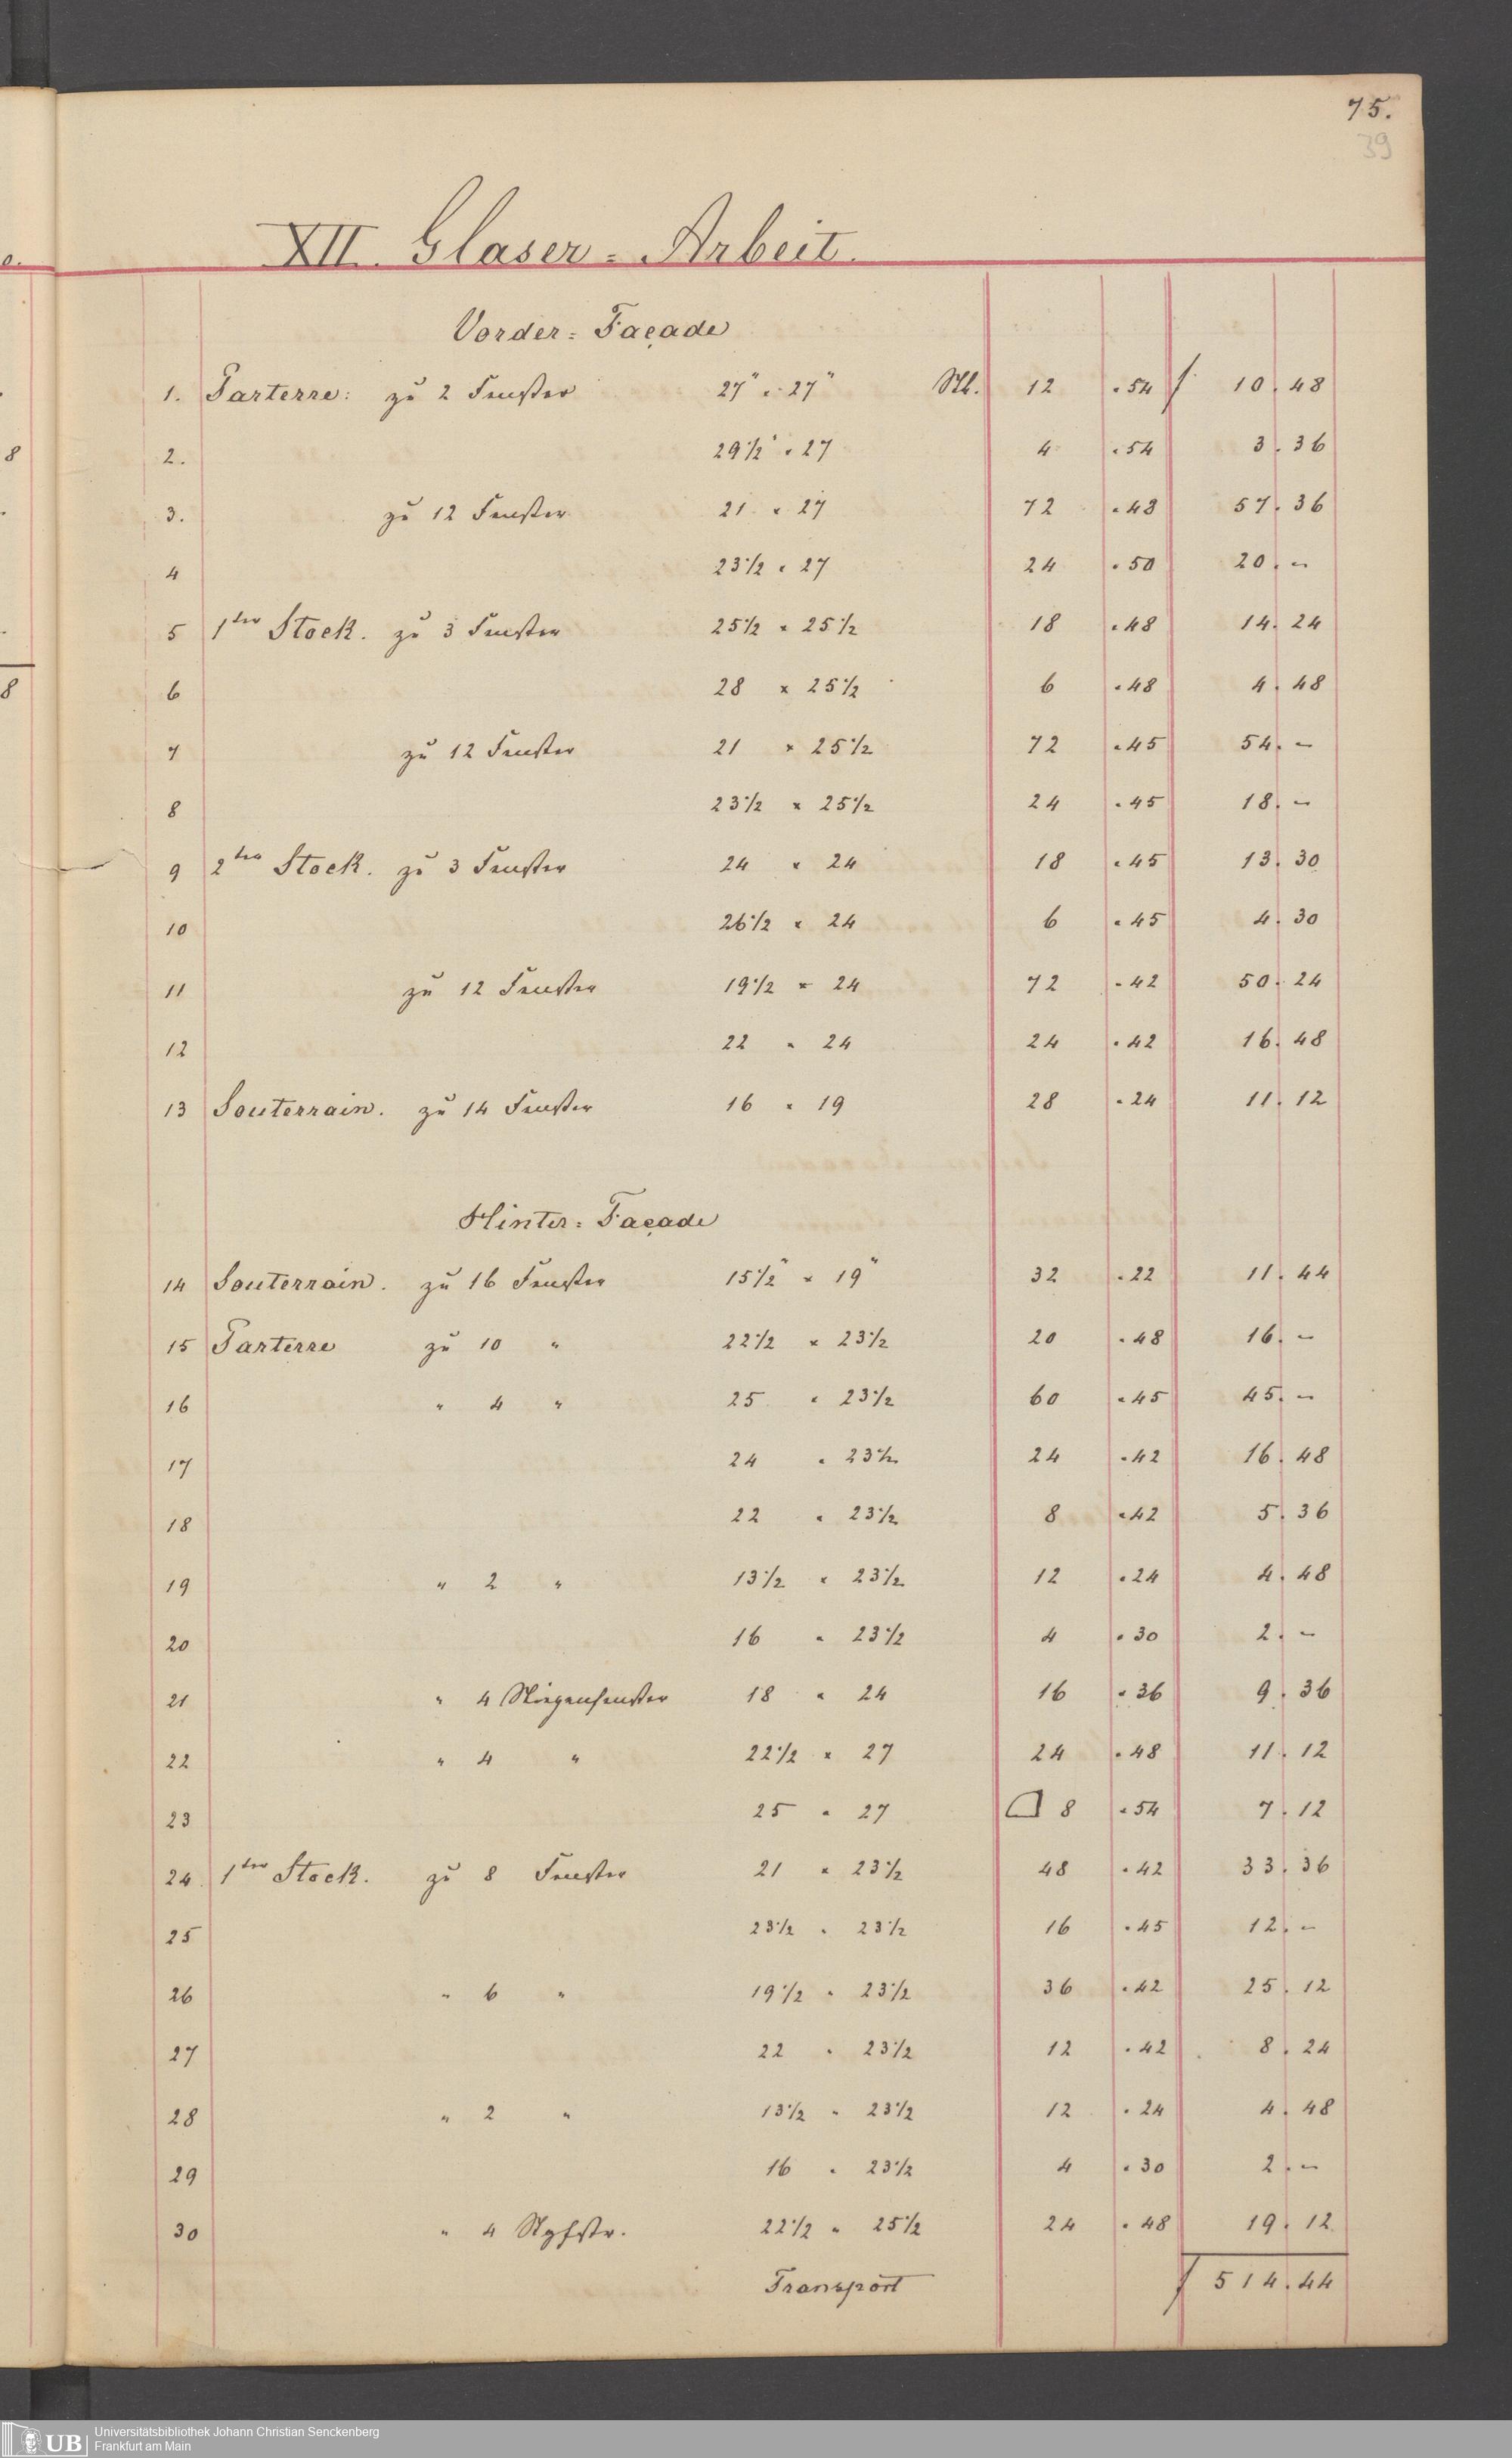 75.
39
XII. Glaser=Arbeit.
Vorder=Façade
1. Parterre: zu 2 Fenster 27" × 27" Stk. 12 .54 f 10.48
2. 29 1/2 × 27 4 .54 3.36
3. zu 12 Fenster 21 × 27 72 .48 57.36
4 23 1/2 × 27 24 .50 20.–
5 1ter Stock. zu 3 Fenster 25 1/2 × 25 1/2 18 .48 14.24
6 28 × 25 1/2 6 .48 4.48
7 zu 12 Fenster 21 × 25 1/2 72 .45 54.–
8 23 1/2 × 25 1/2 24 .45 18.–
9 2ter Stock. zu 3 Fenster 24 × 24 18 .45 13.30
10 26 1/2 × 24 6 .45 4.30
11 zu 12 Fenster 19 1/2 × 24 72 .42 50.24
12 22 × 24 24 .42 16.48
13 Souterrain. zu 14 Fenster 16 × 19 28 .24 11.12
Hinter=Façade
14 Souterrain. zu 16 Fenster 15 1/2" × 19" 32 .22 11.44
15 Parterre zu 10 " 22 1/2 × 23 1/2 20 .48 16.–
16 " 4 " 25 × 23 1/2 60 .45 45.–
17 24 × 23 1/2 24 .42 16.48
18 22 × 23 1/2 8 .42 5.36
19 " 2 " 13 1/2 × 23 1/2 12 .24 4.48
20 16 × 23 1/2 4 .30 2.–
21 " 4 Stiegenfenster 18 × 24 16 .36 9.36
22 " 4 " 22 1/2 × 27 24 .48 11.12
23 25 × 27 8 .54 7.12
24. 1ter Stock. zu 8 Fenster 21 × 23 1/2 48 .42 33.36
25 23 1/2 × 23 1/2 16 .45 12.–
26 " 6 " 19 1/2 × 23 1/2 36 .42 25.12
27 22 × 23 1/2 12 .42 8.24
28 " 2 " 13 1/2 × 23 1/2 12 .24 4.48
29 16 × 23 1/2 4 .30 2.–
30 " 4 Stgfstr. 22 1/2 × 25 1/2 24 .48 19.12
Transport f 514.44
UB Universitätsbibliothek Johann Christian Senckenberg
Frankfurt am Main